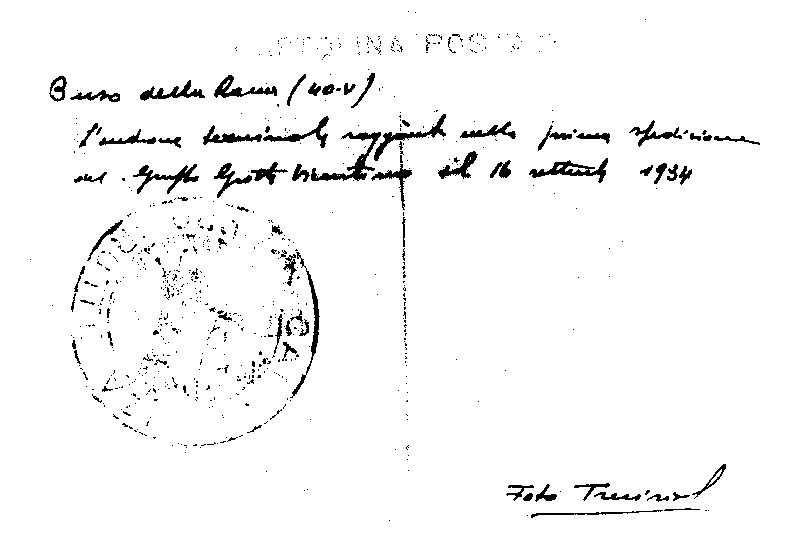 CARTOLINA POSTA
Buso della Rana (40-V)
L'androne terminale raggiunto nella prima spedizione
del Gruppo Grotte Vicentino il 16 settemb 1934
Foto Trevisiol